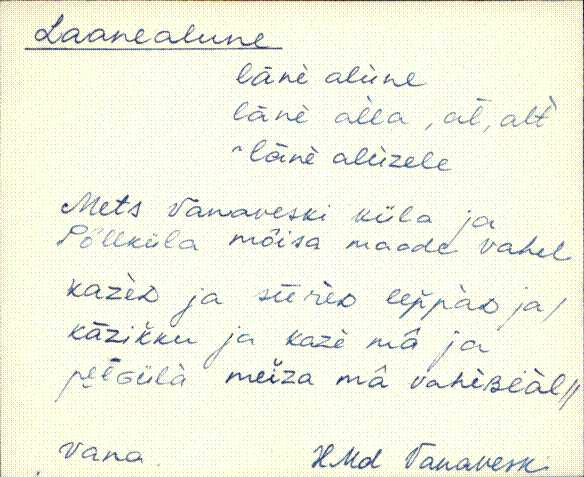 Laanealune
lānè alùne
lānè alla, al, alt
lānè alùzele
Mets Vanaveski küla ja
Põllküla mõisa maade vahel
kazèᴅ ja sūrèᴅ leppàᴅ ja/
kāzikku ja kazè mâ ja
meiza mâ vahèʙèàl//
vana
HMd Vanaveski